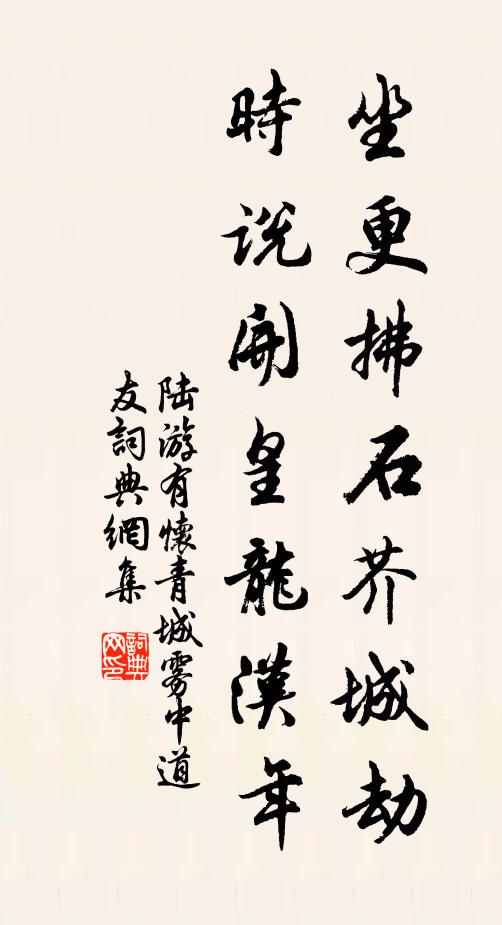 坐更拂石芥城劫
時説開皇龍漢年
陆游有懷青城雾中道
友詞典網集
詞典網印